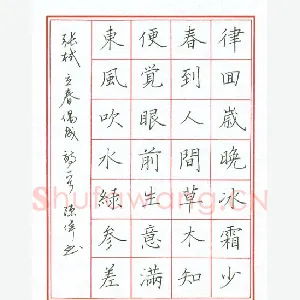 律回歲晚冰霜少
春到人間草木知
便覺眼前生意滿
東風吹水綠參差
张栻立春偶成
Shufawang.CN